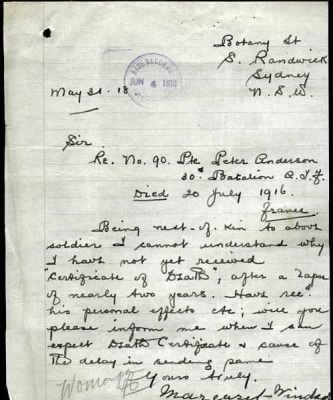 Botany St
S. Randwick
Sydney
N.S.W.
BASE RECORDS
JUN 4 1918
May 31. 18.
Sir
Re. No. 90. Pte Peter Anderson
30th Batalion A.I.F.
Died 20 July 1916.
France
Being next-of-kin to above
soldier I cannot understand why
I have not yet received
"Certificate of Death", after a lapse
of nearly two years. Have recd
his personal effects etc; will you
please inform me when I can
expect Death Certificate & cause of
the delay in sending same
Yours truly.
Margaret